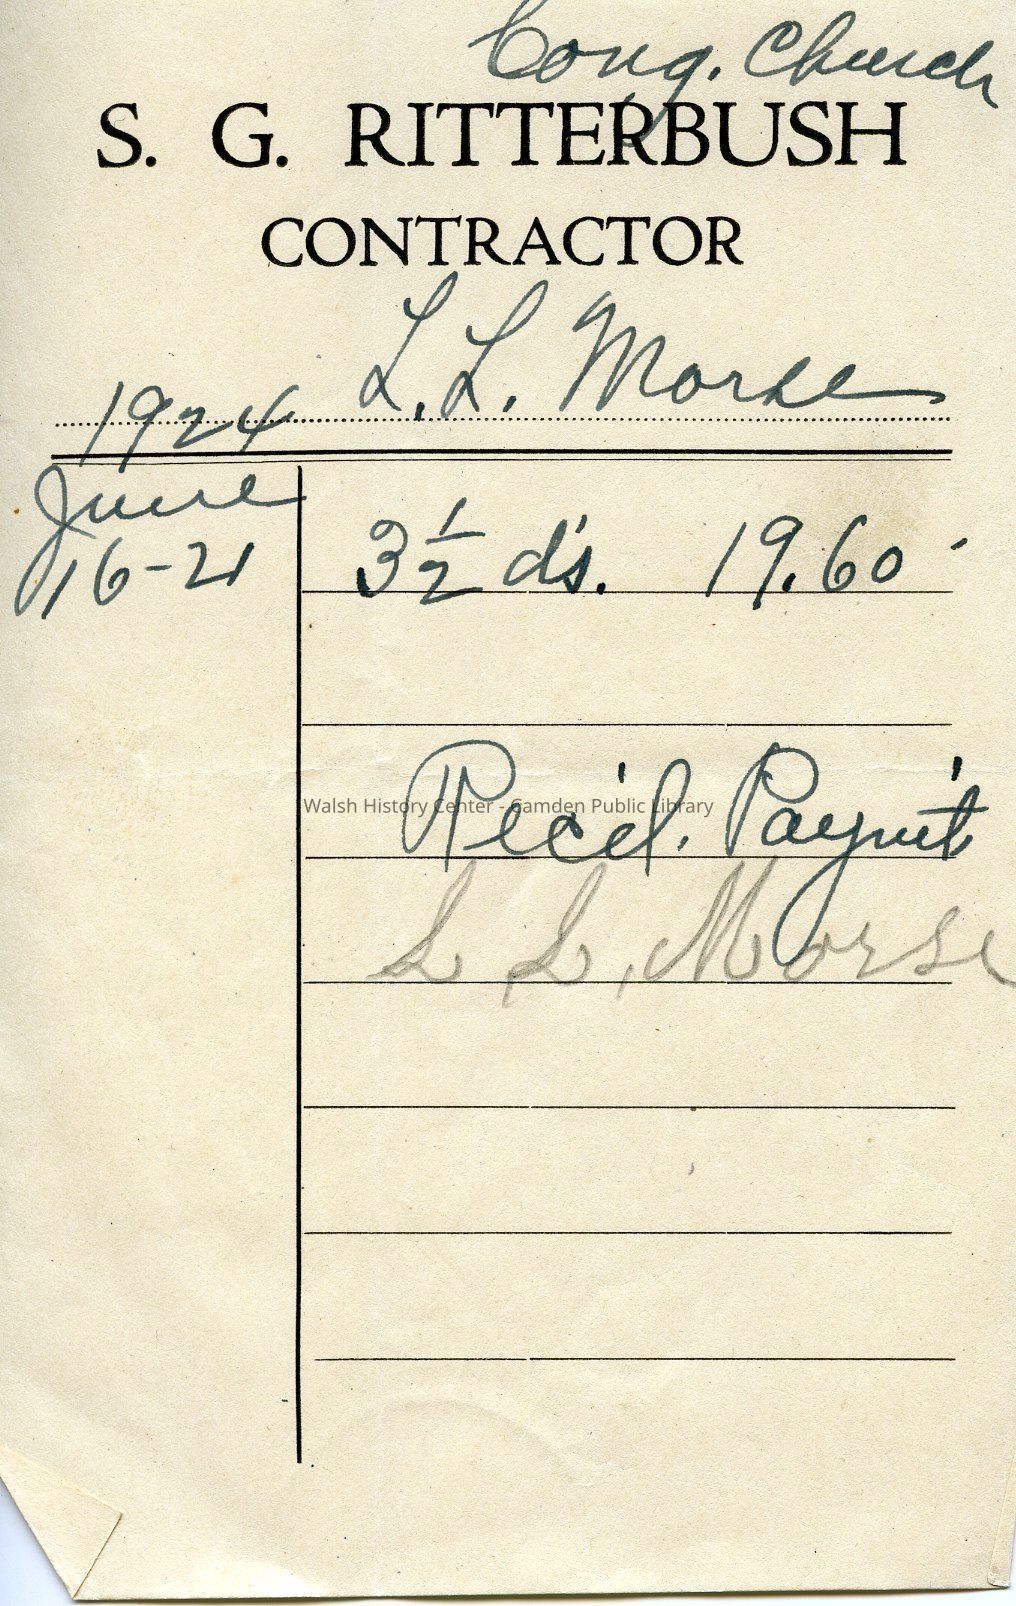 Cong. Church
S. G. RITTERBUSH
CONTRACTOR
L. L. Morse
1924
June
16-21 3 1/2 d's. 19.60
Rec'd. Paym't
Walsh History Center - Camden Public Library
L. L. Morse